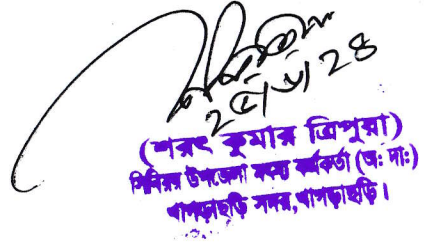 ২৫/৬/২৪
(শরৎ কুমার ত্রিপুরা)
সিনিয়র উপজেলা মৎস্য কর্মকর্তা (অ: দা:)
খাগড়াছড়ি সদর, খাগড়াছড়ি।